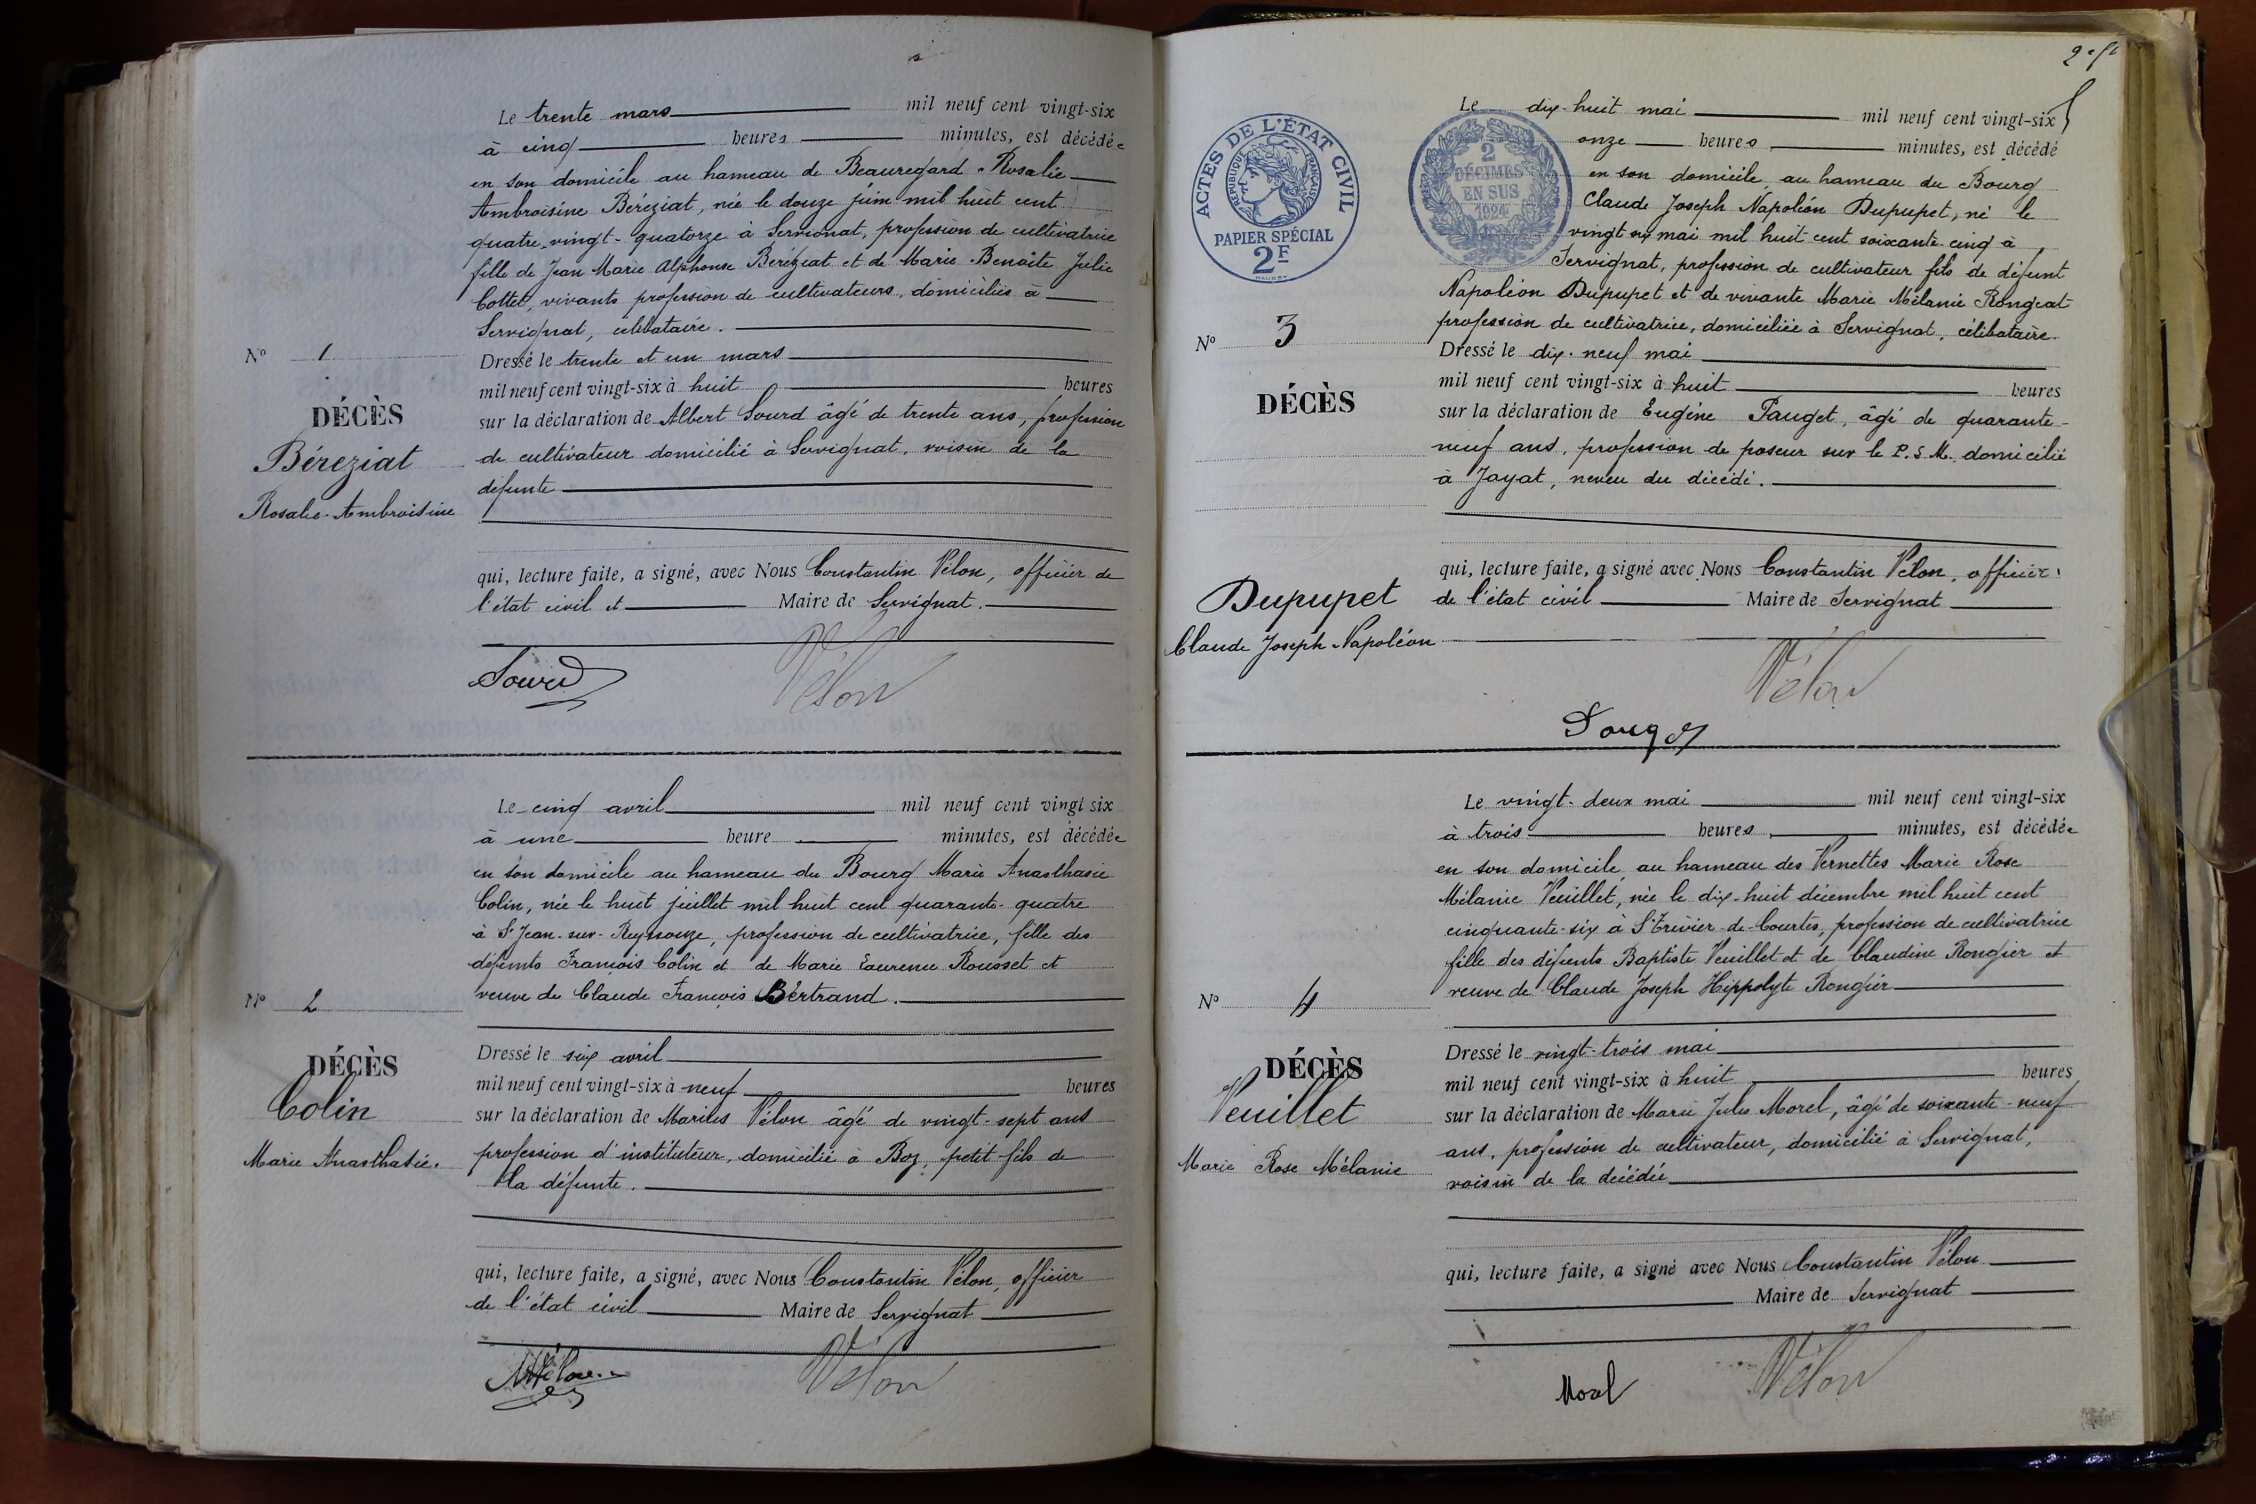 Le trente mars mil neuf cent vingt-six
à cinq heures minutes, est décédée
en son domicile au hameau de Beauregard Rosalie
Ambroisine Béréziat, née le douze juin mil huit cent
quatre-vingt-quatorze à Servignat, profession de cultivatrice
fille de Jean Marie Alphonse Béréziat et de Marie Benoîte Julie
Cottet, vivants profession de cultivateurs, domiciliés à
Servignat, célibataire.
Nº 1
Dressé le trente et un mars
mil neuf cent vingt-six à huit heures
DÉCÈS
sur la déclaration de Albert Sourd âgé de trente ans, profession
Béreziat
de cultivateur domicilié à Servignat, voisin de la
défunte
Rosalie-Ambroisine
qui, lecture faite, a signé, avec Nous Constantin Vélon, officier de
l'état civil et Maire de Servignat.
Sourd
Vélon
Le cinq avril mil neuf cent vingt six
à une heure minutes, est décédée
en son domicile au hameau du Bourg Marie Anasthasie
Colin, née le huit juillet mil huit cent quarante-quatre
à St Jean-sur-Reyssouze, profession de cultivatrice, fille des
défunts François Colin et de Marie Laurence Rousset et
veuve de Claude François Bertrand.
Nº 2
Dressé le six avril
DÉCÈS
mil neuf cent vingt-six à neuf heures
Colin
sur la déclaration de Marius Vélon âgé de vingt-sept ans
Marie Anasthasie.
profession d'instituteur, domicilié à Boz, petit-fils de
la défunte.
qui, lecture faite, a signé, avec Nous Constantin Vélon, officier
de l'état civil Maire de Servignat
MVélon
Vélon
ACTES DE L'ÉTAT CIVIL
RÉPUBLIQUE FRANÇAISE
PAPIER SPÉCIAL
2F
2
DÉCIMES
EN SUS
1924
Le dix-huit mai mil neuf cent vingt-six
onze heures minutes, est décédé
en son domicile au hameau du Bourg
Claude Joseph Napoléon Dupupet, né le
vingt six mai mil huit cent soixante-cinq à
Servignat, profession de cultivateur fils de défunt
Napoléon Dupupet et de vivante Marie Mélanie Rongeat
profession de cultivatrice, domiciliée à Servignat, célibataire.
Nº 3
Dressé le dix-neuf mai
mil neuf cent vingt-six à huit heures
DÉCÈS
sur la déclaration de Eugène Pauget, âgé de quarante-
neuf ans, profession de poseur sur le P.S.M. domicilié
à Jayat, neveu du décédé.
qui, lecture faite, a signé avec Nous Constantin Vélon, officier
Dupupet
de l'état civil Maire de Servignat
Claude Joseph Napoléon
Vélon
Pauget
Le vingt-deux mai mil neuf cent vingt-six
à trois heures minutes, est décédée
en son domicile au hameau des Vernettes Marie Rose
Mélanie Veuillet, née le dix-huit décembre mil huit cent
cinquante-six à St Trivier-de-Courtes, profession de cultivatrice
fille des défunts Baptiste Veuillet et de Claudine Rongier et
veuve de Claude Joseph Hippolyte Rongier
Nº 4
Dressé le vingt-trois mai
DÉCÈS
mil neuf cent vingt-six à huit heures
Veuillet
sur la déclaration de Marie Jules Morel, âgé de soixante-neuf
ans, profession de cultivateur, domicilié à Servignat,
Marie Rose Mélanie
voisin de la décédée
qui, lecture faite, a signé avec Nous Constantin Vélon
Maire de Servignat
Morel
Vélon